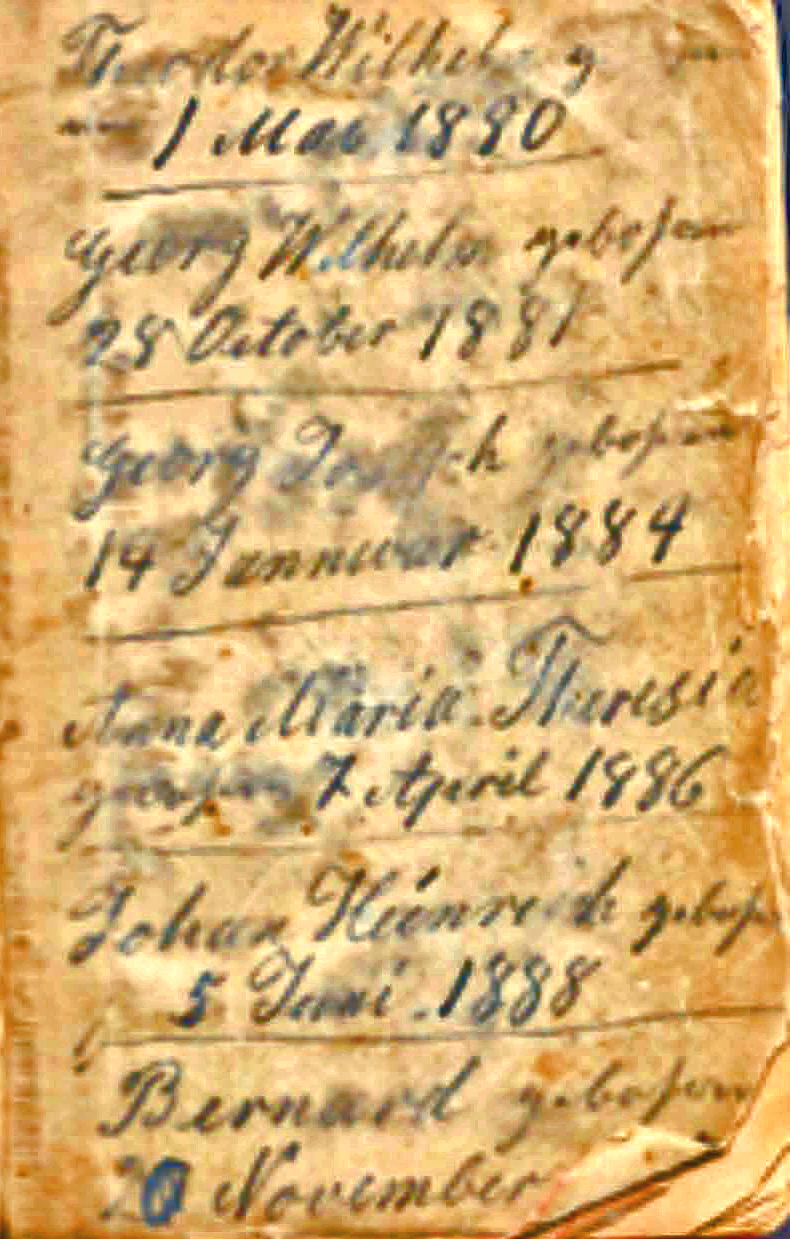 Theodor Wilhelm
1 Mai 1880
Georg Wilhelm geboren
28 October 1881
Georg Joseph geboren
14 Jannuar 1884
Anna Maria Theresia
geboren 7 April 1886
Johan Heinreich gebor
5 Juni 1888
Bernard geboren
20 November